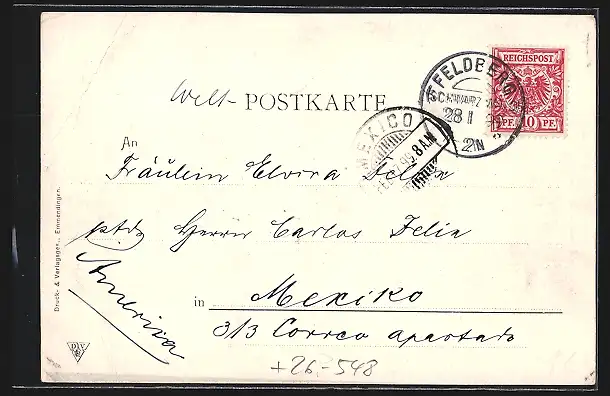 Welt- POSTKARTE
REICHSPOST
10 PF. 10 PF.
FELDBERG
28 1
2N
MEXICO
8 A.M.
An
Fräulein Elvira Felix
ptdo Herrn Carlos Felix
America
in Mexiko
313 Correo apartado
+26-548
Druck- & Verlagsges., Emmendingen.
D V